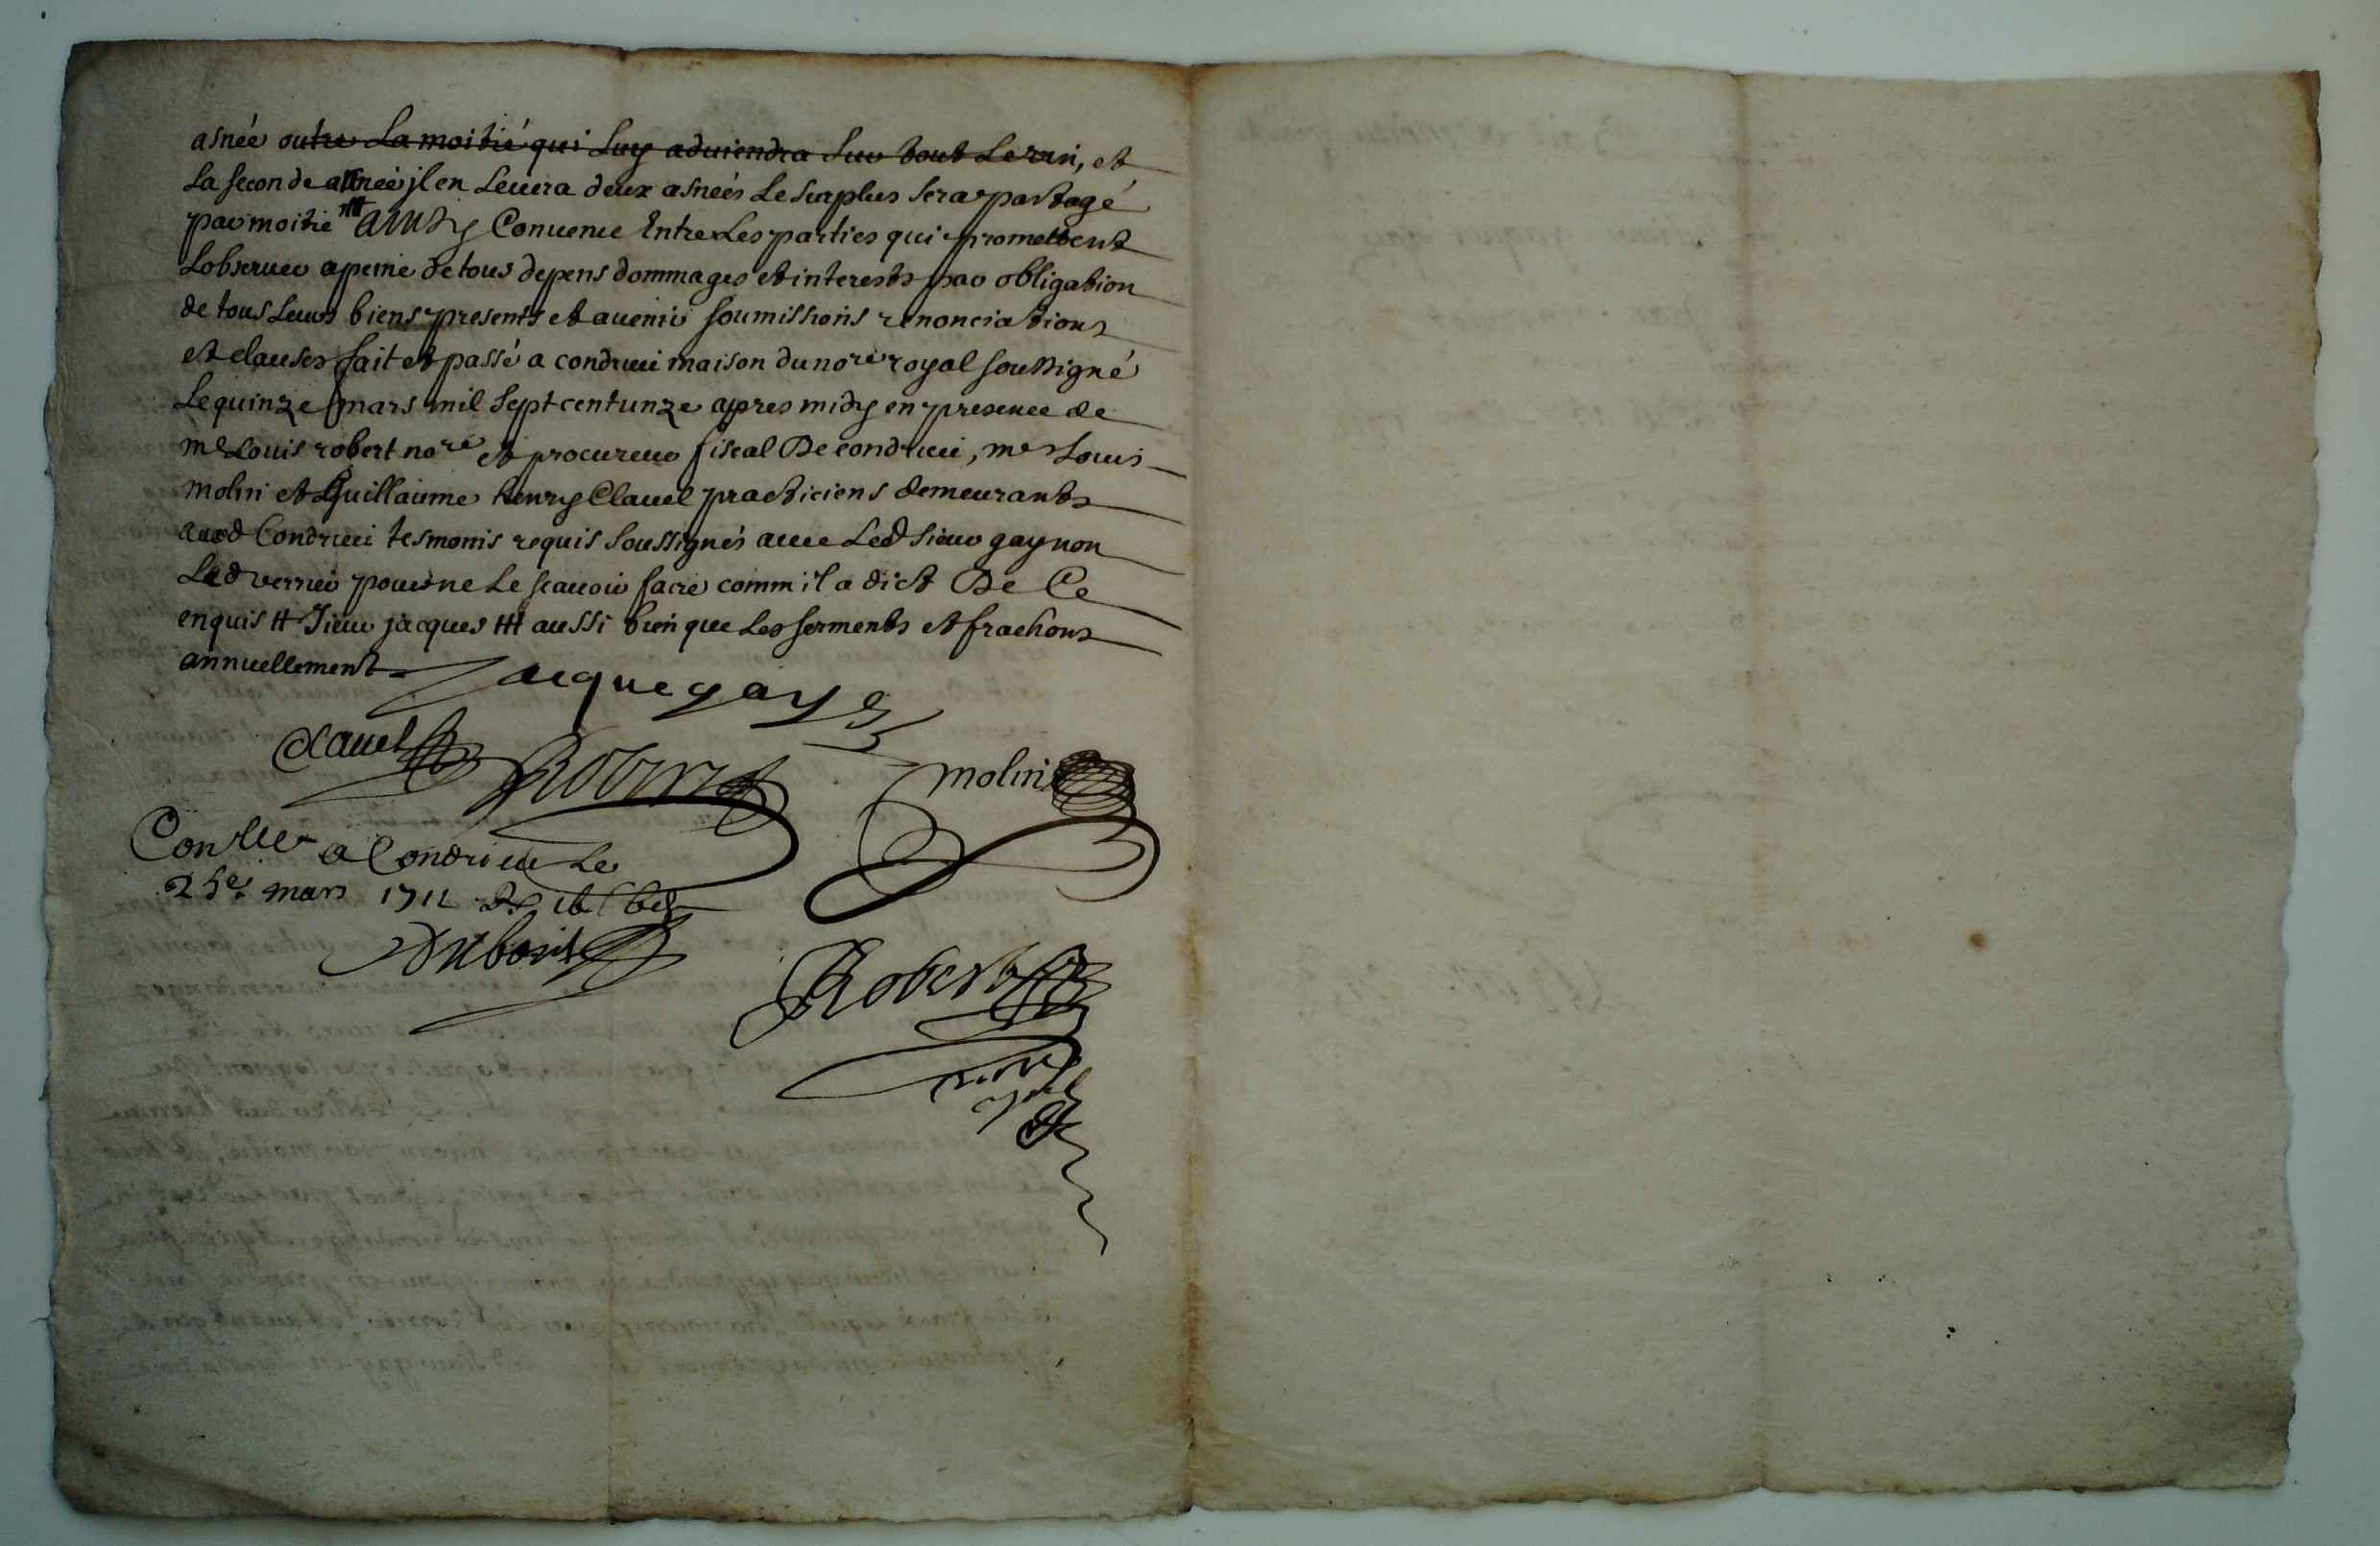 asnée outre La moitié qui Luy aduiendra Sur tout Le vin, et
La seconde année jl en Leuera deux asnées Le surplus sera partagé
par moitie ## ainsy Conuenu Entre Les parties qui promettent
Lobseruer a peine de tous depens dommages et interests par obligation
de tous Leurs biens presents et auenir soumissions renonciations
et clauses fait et passé a condrieu maison du no.re royal soussigné
Le quinze mars mil Sept cent unze apres midy en presence de
me Louis robert no.re et procureur fiscal De condrieu, me Louis
molin et Guillaume henry Clauel practiciens demeurants
aud Condrieu tesmoins requis Soussignés auec Led sieur gay non
Led verrier pour ne Le scauoir faire comm il a dict De Ce
enquis # Sieur jacques ## aussi bien que Les serments et frachons
annuellement
Jacque gay
Clauel
Robert
molin
Conllé a Condrieu Le
25e mars 1711
Dubois
Robert